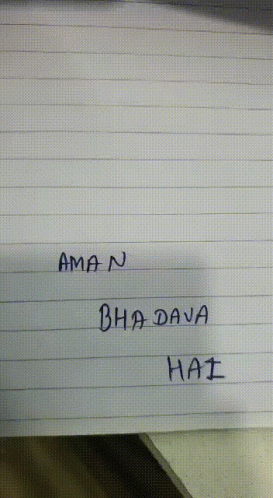 AMAN
BHADAVA
HAI